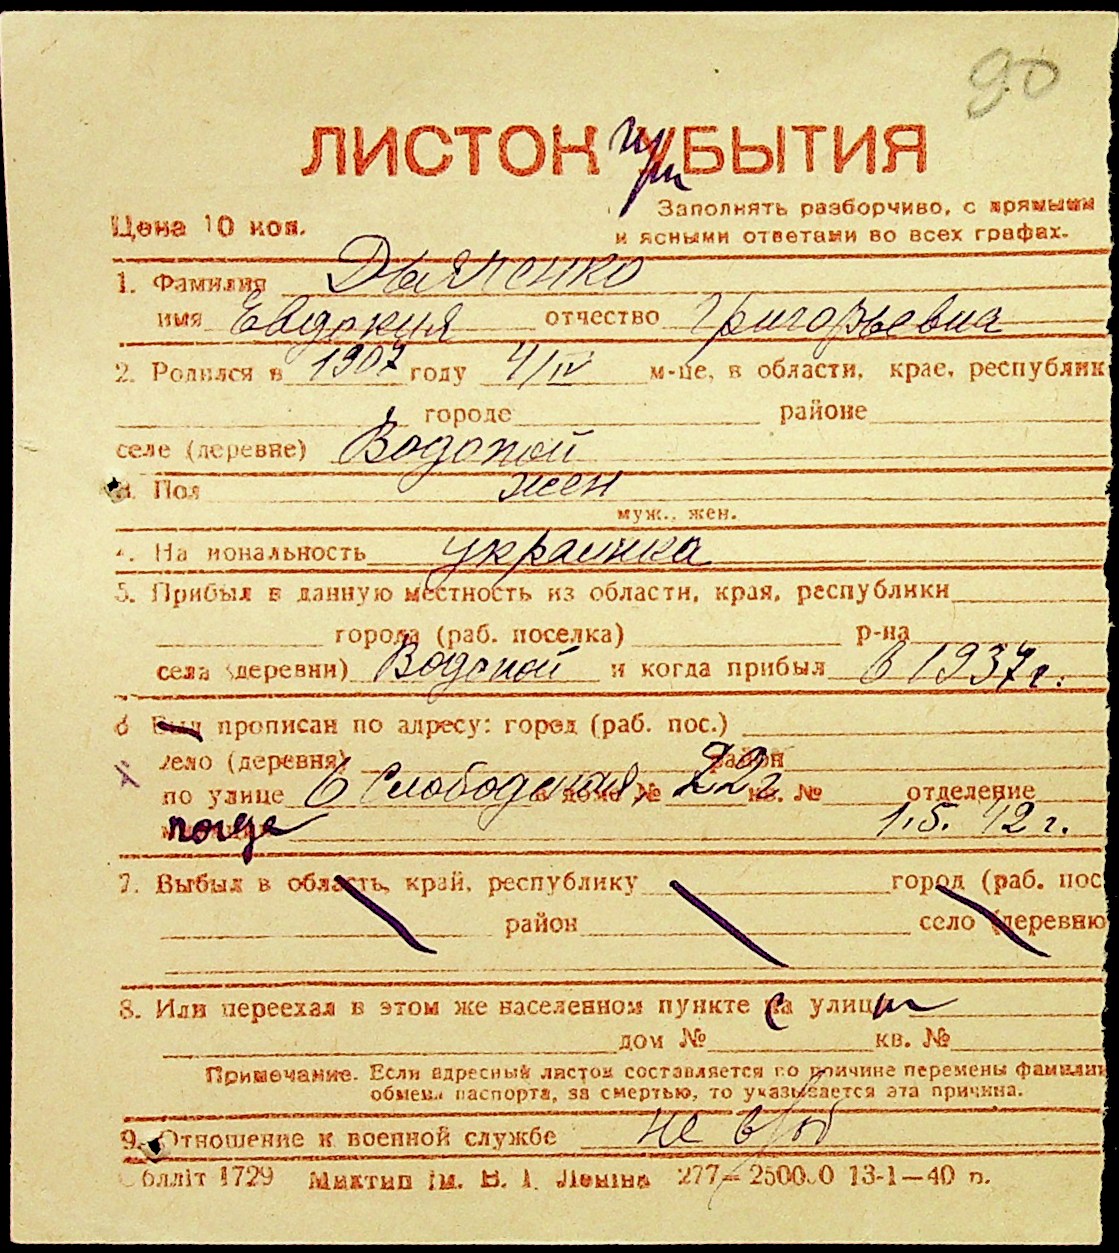 90
ЛИСТОК при УБЫТИЯ
Цена 10 коп.
Заполнять разборчиво, с прямыми
и ясными ответами во всех графах.
1. Фамилия Дьяченко
имя Евдокия отчество Григорьевна
2. Родился в 1907 году 4/IV м-це, в области, крае, республик
городе районе
селе (деревне) Водопой
3. Пол жен
муж., жен.
4. Национальность украинка
5. Прибыл в данную местность из области, края, республики
города (раб. поселка) р-на
села (деревни) Водопой и когда прибыл в 1937 г.
6 Был прописан по адресу: город (раб. пос.)
село (деревня) район
по улице 6 Слободская, в доме № 22 кв. № отделение
1.5. 42 г.
7. Выбыл в область, край, республику город (раб. пос
район село (деревню
8. Или переехал в этом же населенном пункте с улицы
дом № кв. №
Примечание. Если адресный листок составляется по причине перемены фамилии
обмена паспорта, за смертью, то указывается эта причина.
9. Отношение к военной службе не в/об
блліт 1729 Миктип ім. В. І. Леніна 277—250000 13-1—40 р.